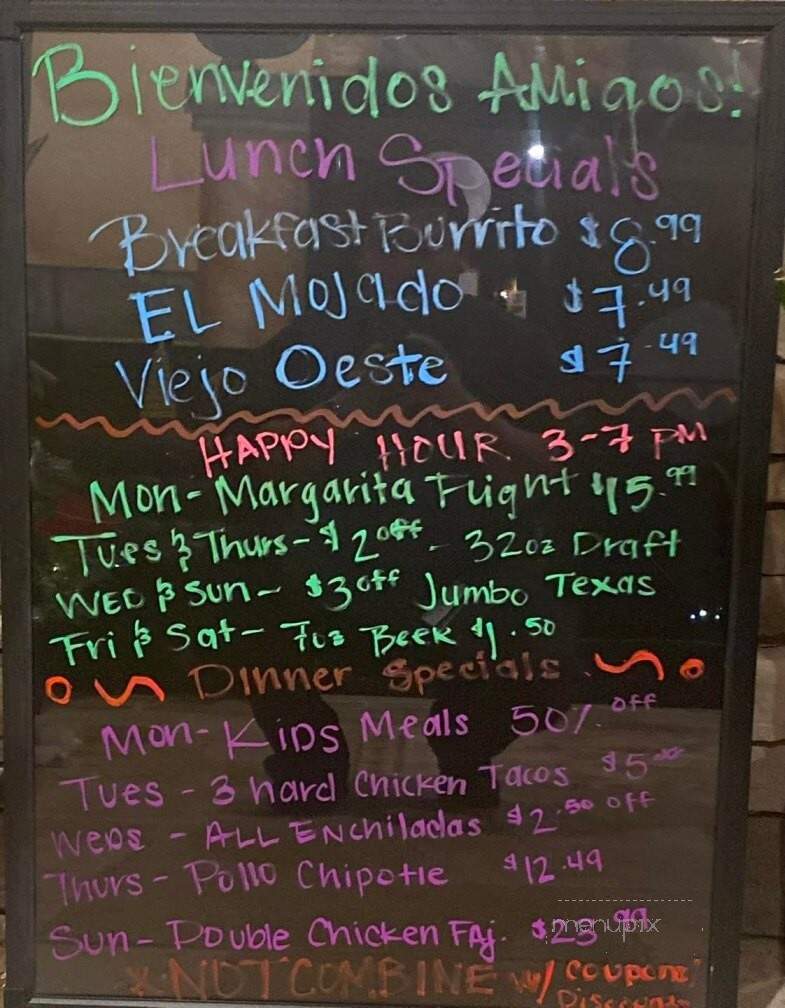 Bienvenidos Amigos!
Lunch Specials
Breakfast Burrito $8.99
EL Mojado $7.49
Viejo Oeste $7.49
HAPPY HOUR 3-7 PM
Mon- Margarita Flight $15.99
Tues & Thurs- $2 off - 32oz Draft
WED & Sun- $3 off Jumbo Texas
Fri & Sat- 7oz Beer $1.50
Dinner Specials
Mon- Kids Meals 50% off
Tues - 3 hard Chicken Tacos $5
Weds - ALL Enchiladas $2.50 off
Thurs - Pollo Chipotle $12.49
Sun- Double Chicken Faj. $23.99
menupix
*NOT COMBINE w/ coupons/
Discounts